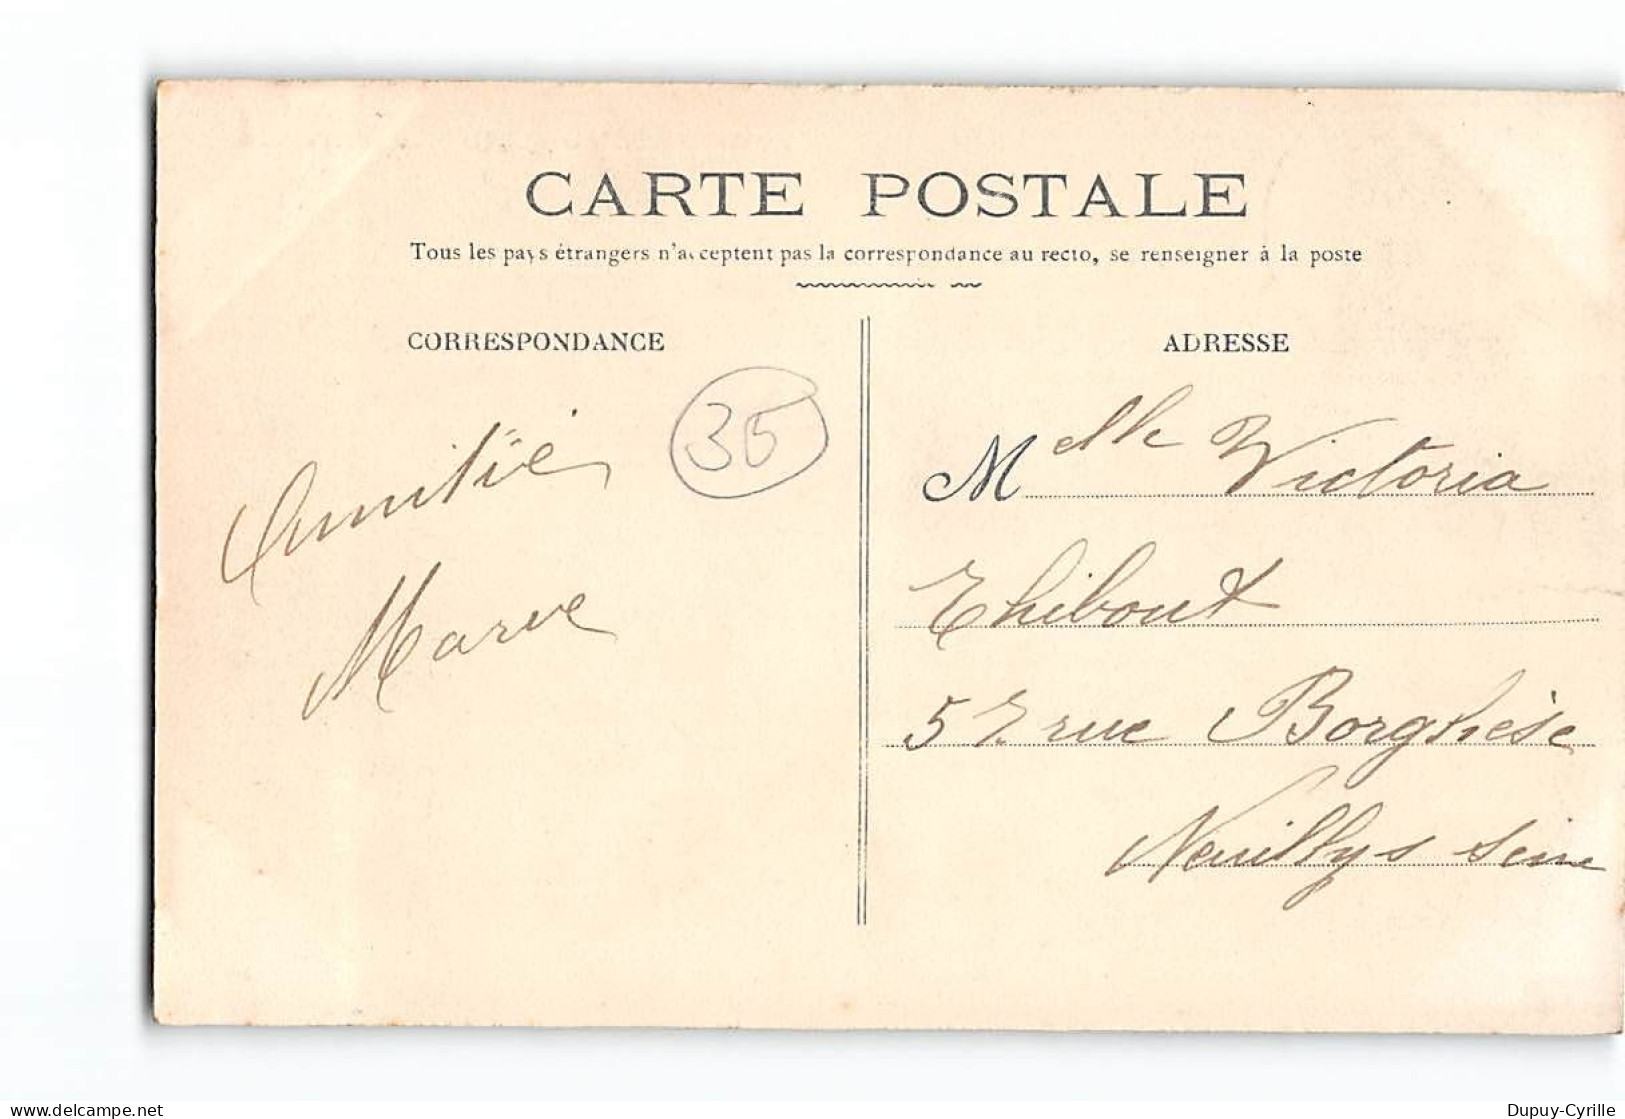 CARTE POSTALE
Tous les pays étrangers n'acceptent pas la correspondance au recto, se renseigner à la poste
CORRESPONDANCE
35
Amitié
Marie
ADRESSE
Melle Victoria
Thibout
57 rue Borghèse
Neuilly s seine
delcampe.net
Dupuy-Cyrille